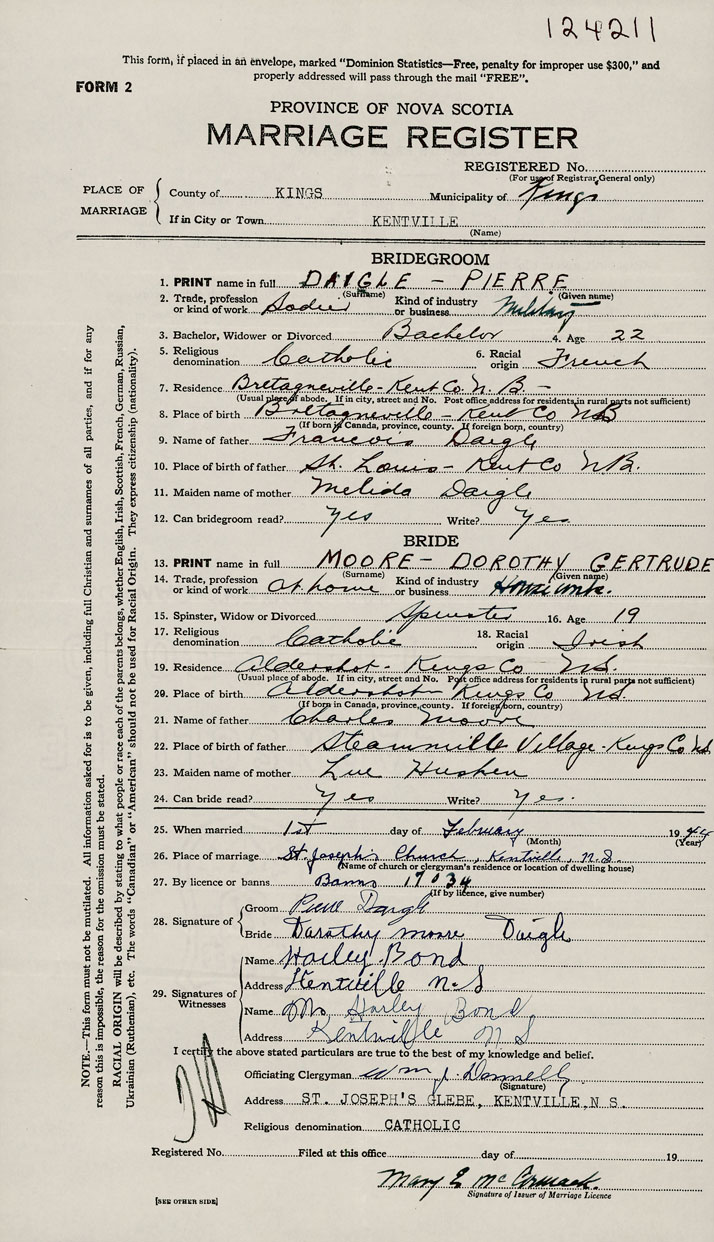 124211
This form, if placed in an envelope, marked "Dominion Statistics—Free, penalty for improper use $300," and
properly addressed will pass through the mail "FREE".
FORM 2
PROVINCE OF NOVA SCOTIA
MARRIAGE REGISTER
REGISTERED No.
(For use of Registrar General only)
PLACE OF MARRIAGE
County of KINGS Municipality of Kings
If in City or Town KENTVILLE
(Name)
BRIDEGROOM
1. PRINT name in full DAIGLE - PIERRE
(Surname) (Given name)
2. Trade, profession or kind of work Kind of industry or business Military
3. Bachelor, Widower or Divorced Bachelor 4. Age 22
5. Religious denomination Catholic 6. Racial origin French
7. Residence Bretagneville - Kent Co N. B. -
(Usual place of abode. If in city, street and No. Post office address for residents in rural parts not sufficient)
8. Place of birth Bretagneville - Kent Co NB
(If born in Canada, province, county. If foreign born, country)
9. Name of father Francois Daigle
10. Place of birth of father St. Louis - Kent Co N.B.
11. Maiden name of mother Melida Daigle
12. Can bridegroom read? Yes Write? Yes
BRIDE
13. PRINT name in full MOORE - DOROTHY GERTRUDE
(Surname) (Given name)
14. Trade, profession or kind of work At home Kind of industry or business
15. Spinster, Widow or Divorced Spinster 16. Age 19
17. Religious denomination Catholic 18. Racial origin Irish
19. Residence Aldershot - Kings Co N.S.
(Usual place of abode. If in city, street and No. Post office address for residents in rural parts not sufficient)
20. Place of birth Aldershot - Kings Co NS
(If born in Canada, province, county. If foreign born, country)
21. Name of father Charles Moore
22. Place of birth of father Steammille Village - Kings Co NS
23. Maiden name of mother
24. Can bride read? Yes Write? Yes.
25. When married 1st day of February 1944
(Month) (Year)
26. Place of marriage St. Joseph's Church, Kentville, N.S.
(Name of church or clergyman's residence or location of dwelling house)
27. By licence or banns Banns 17034
(If by licence, give number)
28. Signature of Groom Pierre Daigle
Bride Dorothy Moore Daigle
29. Signatures of Witnesses
Name Harley Bond
Address Kentville N.S
Name Mrs Harley Bond
Address Kentville N S
I certify the above stated particulars are true to the best of my knowledge and belief.
Officiating Clergyman Wm J. Donnelly
(Signature)
Address ST. JOSEPH'S GLEBE, KENTVILLE, N S.
Religious denomination CATHOLIC
Registered No. Filed at this office day of 19
Mary E McCormack
Signature of Issuer of Marriage Licence
[SEE OTHER SIDE]
NOTE.—This form must not be mutilated. All information asked for is to be given, including full Christian and surnames of all parties, and if for any
reason this is impossible, the reason for the omission must be stated.
RACIAL ORIGIN will be described by stating to what people or race each of the parents belongs, whether English, Irish, Scottish, French, German, Russian,
Ukrainian (Ruthenian), etc. The words "Canadian" or "American" should not be used for Racial Origin. They express citizenship (nationality).